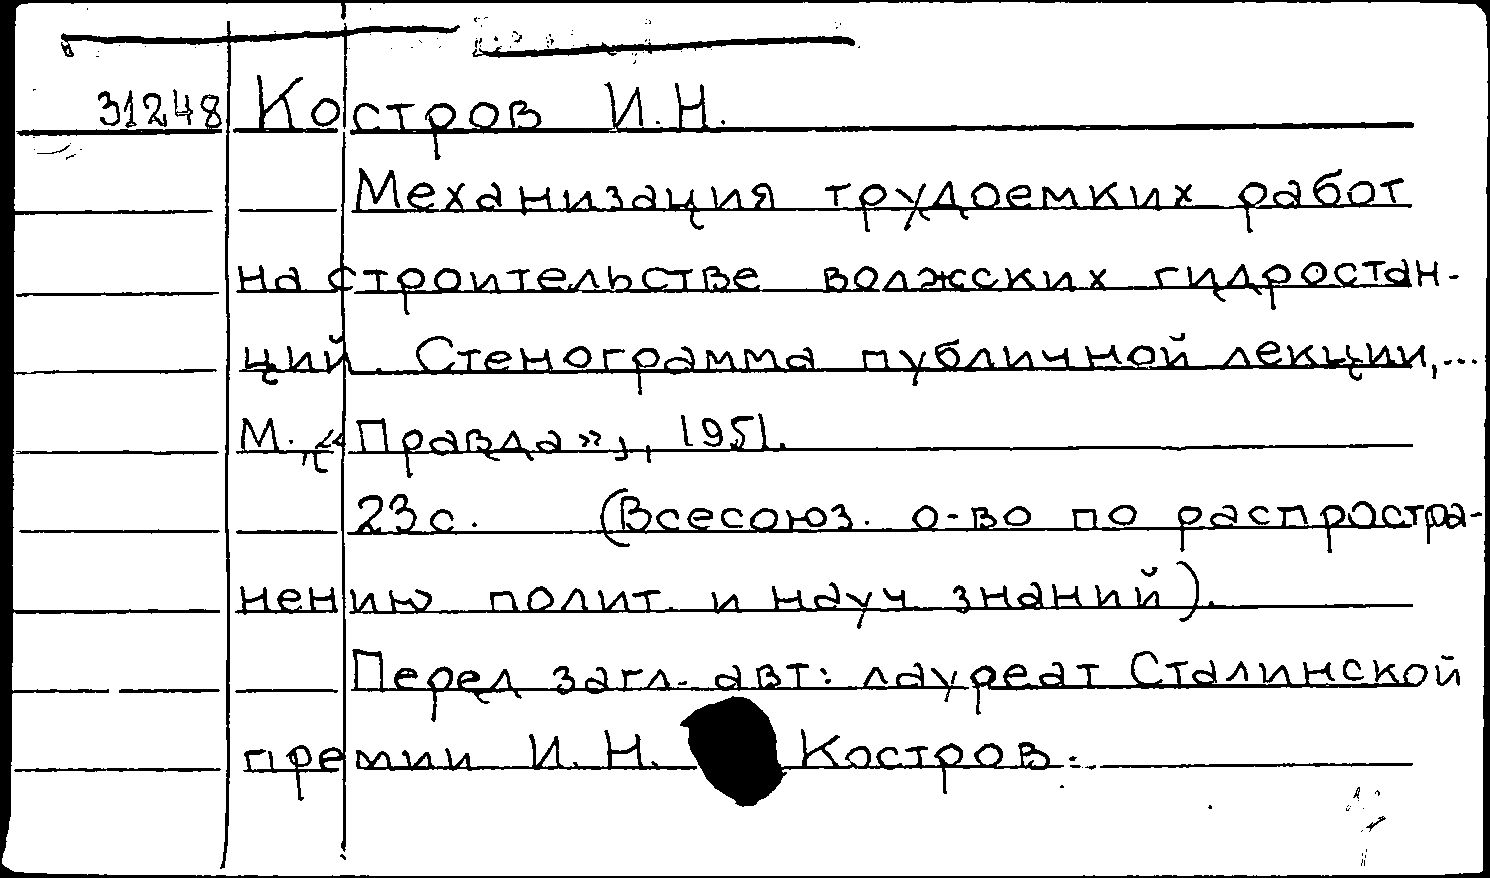 31248 Костров И.Н.
Механизация трудоемких работ
на строительстве волжских гидростан-
ций. Стенограмма публичной лекции,...
М., «Правда», 1951.
23 с. (Всесоюз. о-во по распростра-
нению полит. и науч. знаний).
Перед загл. авт: лауреат Сталинской
премии И.Н. Костров.